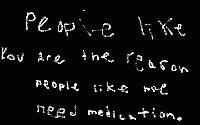 People like
You are the reason
people like me
need medication.